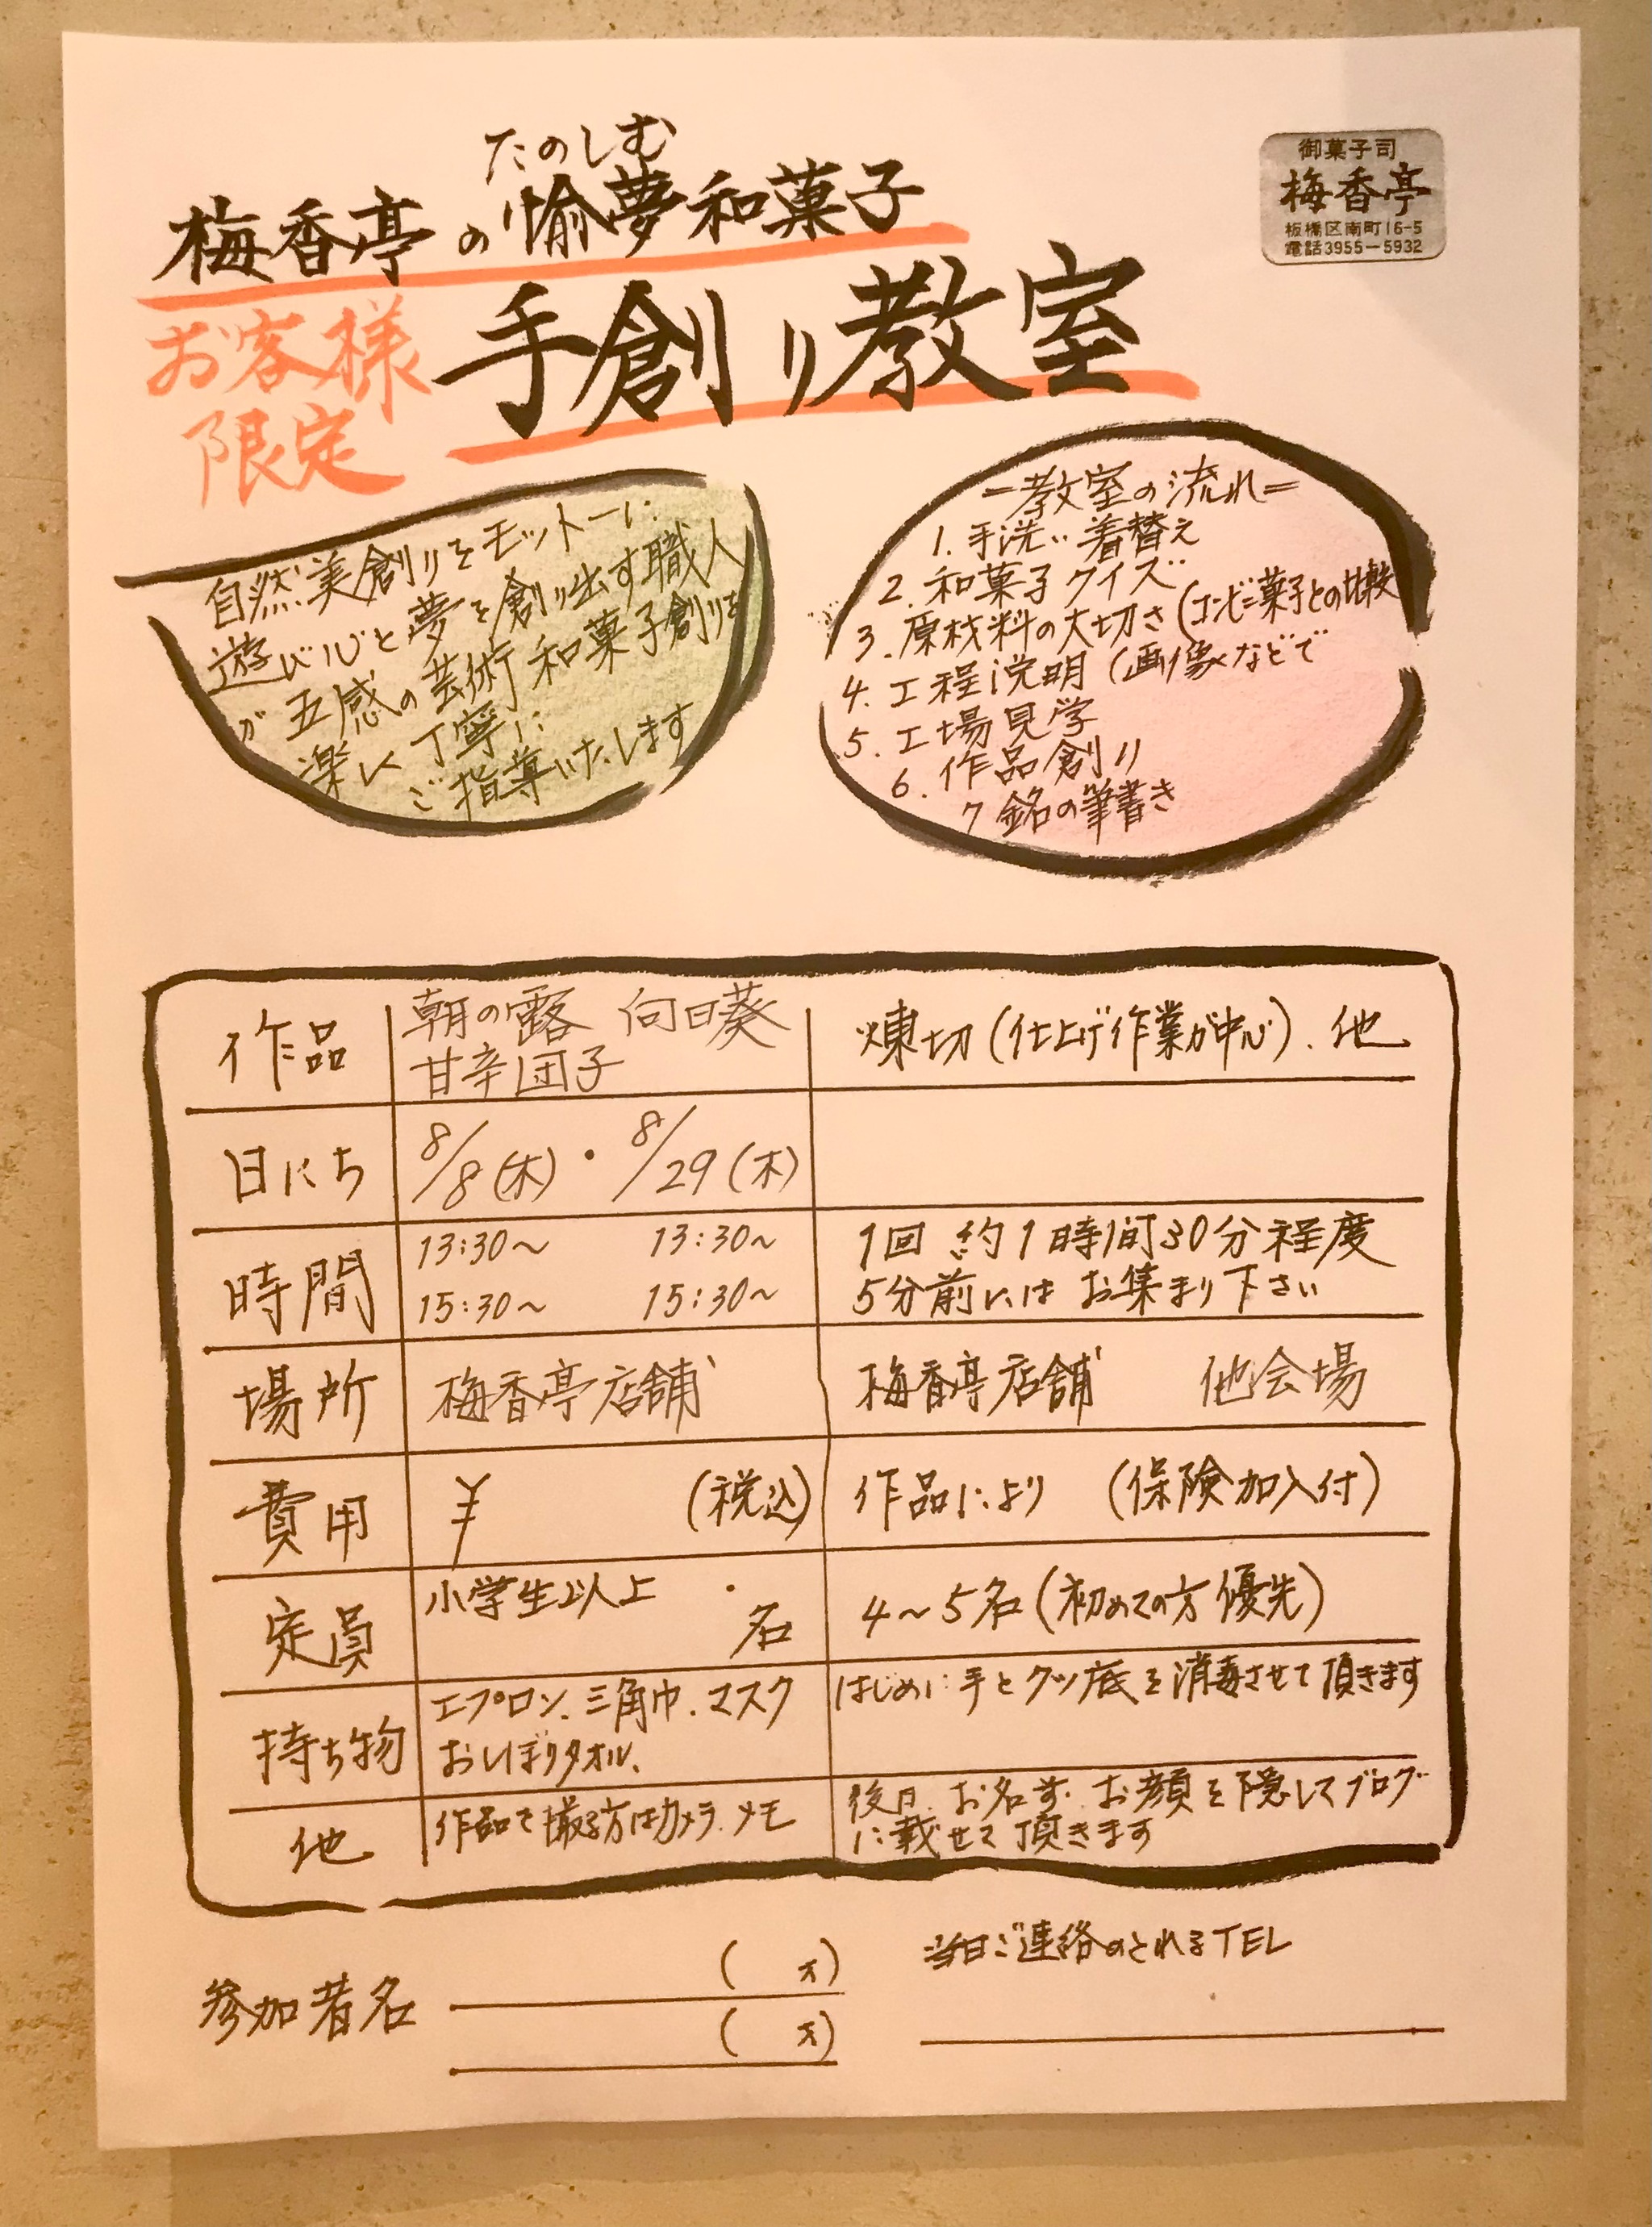 たのしむ
梅香亭の愉夢和菓子
お客様
限定
手創り教室
御菓子司
梅香亭
板橋区南町16-5
電話3955-5932
自然美創りをモットーに
遊び心と夢を創り出す職人
が五感の芸術和菓子創りを
楽しく丁寧に
ご指導いたします
=教室の流れ=
1. 手洗い 着替え
2. 和菓子クイズ
3. 原材料の大切さ(コンビニ菓子との比較
4. 工程説明(画像などで
5. 工場見学
6. 作品創り
7 銘の筆書き
作品
朝の露 向日葵
甘辛団子
煉切(仕上げ作業が中心)、他
日にち
8/8(木)・8/29(木)
時間
13:30~ 13:30~
15:30~ 15:30~
1回 約1時間30分程度
5分前にはお集まり下さい
場所
梅香亭店舗
梅香亭店舗 他会場
費用
¥ (税込)
作品により (保険加入付)
定員
小学生以上
名
4~5名(初めての方優先)
持ち物
エプロン、三角巾、マスク
おしぼりタオル、
はじめに手とクツ底を消毒させて頂きます
他
作品を撮る方はカメラ、メモ
後日、お名前、お顔を隠してブログ
に載せて頂きます
参加者名
( 才)
( 才)
当日ご連絡のとれるTEL